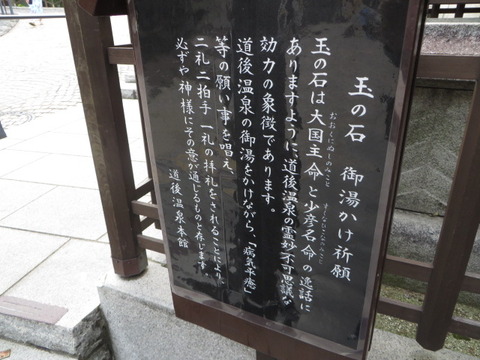 玉の石 御湯かけ祈願
玉の石は大国主命と少彦名命の逸話に
おおくにぬしのみこと
すくなひこなのみこと
ありますように、道後温泉の霊妙不可思議な
効力の象徴であります。
道後温泉の御湯をかけながら、「病気平癒」
等の願い事を唱え、
二礼二拍手一礼の拝礼をされることにより、
必ずや神様にその意が通じるものと存じます。
道後温泉本館